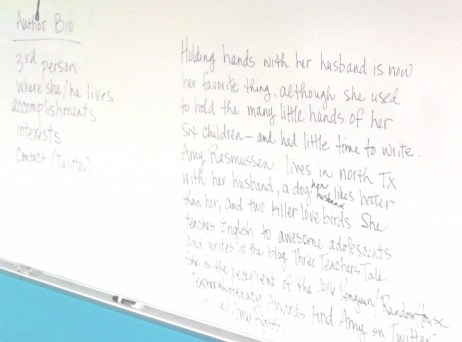 Author Bio
3rd person
where she/he lives
accomplishments
interests
Contact (Twitter)
Holding hands with her husband is now
her favorite thing, although she used
to hold the many little hands of her
six children - and had little time to write.
Amy Rasmussen lives in north TX
with her husband, a dog her husband likes better
than her, and two killer love birds. She
teaches English to awesome adolescents
and writes at the blog Three Teachers Talk.
She is the of the 2016 Penguin/Random House
Teacher Awards Find Amy on Twitter